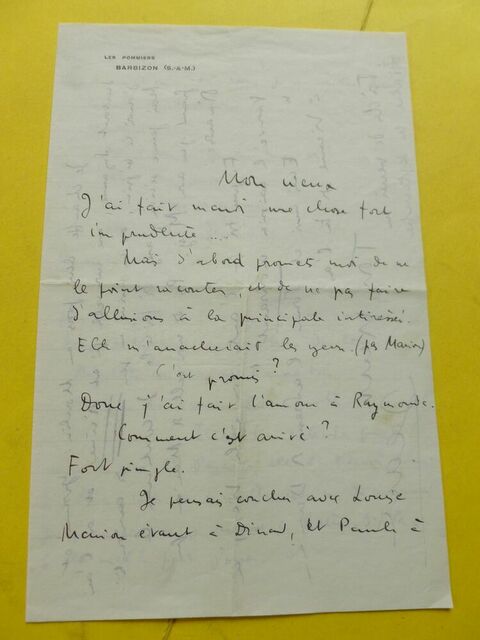 LES POMMIERS
BARBIZON (S.-&-M.)
Mon vieux
J'ai fait mardi une chose fort
imprudente ...
Mais d'abord promets moi de ne
le point raconter, et de ne pas faire
d'allusions à la principale intéressée.
Elle m'arracherait les yeux. (pas Marion)
C'est promis ?
Donc j'ai fait l'amour à Raymonde.
Comment c'est arrivé ?
Fort simple.
Je pensais coucher avec Louise
Marion étant à Dinard, et Paule à